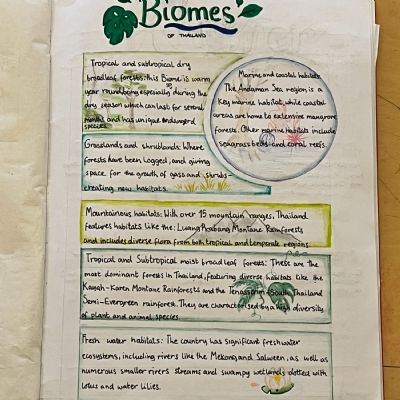 Biomes
OF THAILAND
Tropical and subtropical dry
broadleaf forests: this Biome is warm
year round being especially during the
dry season which can last for several
months and has unique endangerd
species.
Marine and coastal habitats:
The Andaman Sea region is a
Key marine habitat, while coastal
areas are home to extensive mangrove
forests. Other marine habitats include
seagrass beds and coral reefs.
Grasslands and shrublands: Where
forests have been logged, and giving
space for the growth of gass and shrubs-
creating new habitats.
Mountainous habitats: With over 15 mountain ranges, Thailand
features habitats like the: Luang Prabang Montane Rainforests
and includes diverse flora from both tropical and temperate regions.
Tropical and Subtropical moist broadleaf forests: These are the
most dominant forests in Thailand, featuring diverse habitats like the
Kayah-Karen Montane Rainforests and the Tenasserim-South Thailand
Semi-Evergreen rainforest. They are characterised by a high diversity
of plant and animal species.
Fresh water habitats: The country has significant freshwater
ecosystems, including rivers like the Mekong and Salween, as well as
numerous smaller rivers streams and swampy wetlands dotted with
lotus and water lilies.